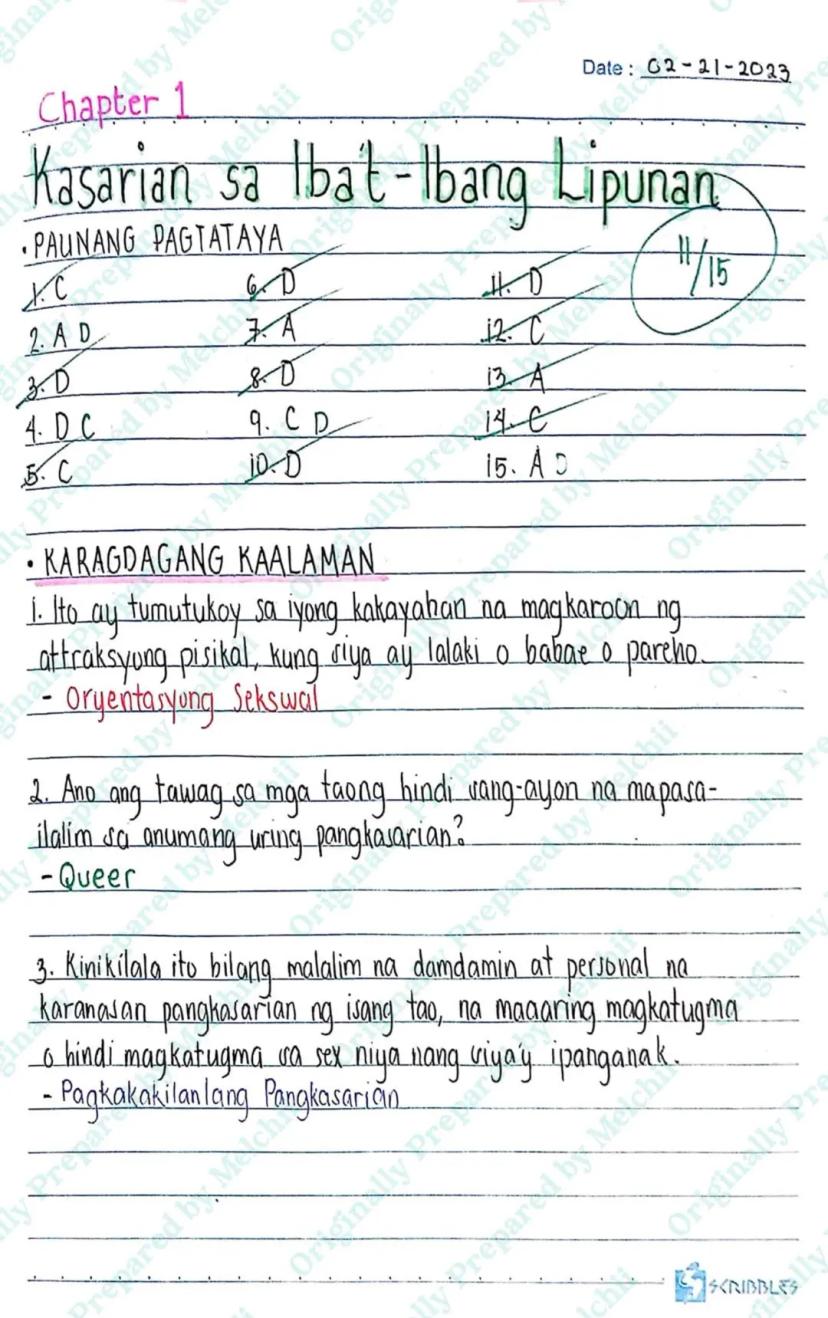 Date: 02-21-2023
Chapter 1
Kasarian sa Iba't-Ibang Lipunan
• PAUNANG PAGTATAYA
11/15
1. C 6. D 11. D
2. A D 7. A 12. C
3. D 8. D 13. A
4. D C 9. C D 14. C
5. C 10. D 15. A D
• KARAGDAGANG KAALAMAN
1. Ito ay tumutukoy sa iyong kakayahan na magkaroon ng
attraksyong pisikal, kung siya ay lalaki o babae o pareho.
- Oryentasyong Sekswal
2. Ano ang tawag sa mga taong hindi sang-ayon na mapasa-
ilalim sa anumang uring pangkasarian?
- Queer
3. Kinikilala ito bilang malalim na damdamin at personal na
karanasan pangkasarian ng isang tao, na maaaring magkatugma
o hindi magkatugma sa sex niya nang siya'y ipanganak.
- Pagkakakilanlang Pangkasarian
SCRIBBLES
Originally Prepared by Melchii